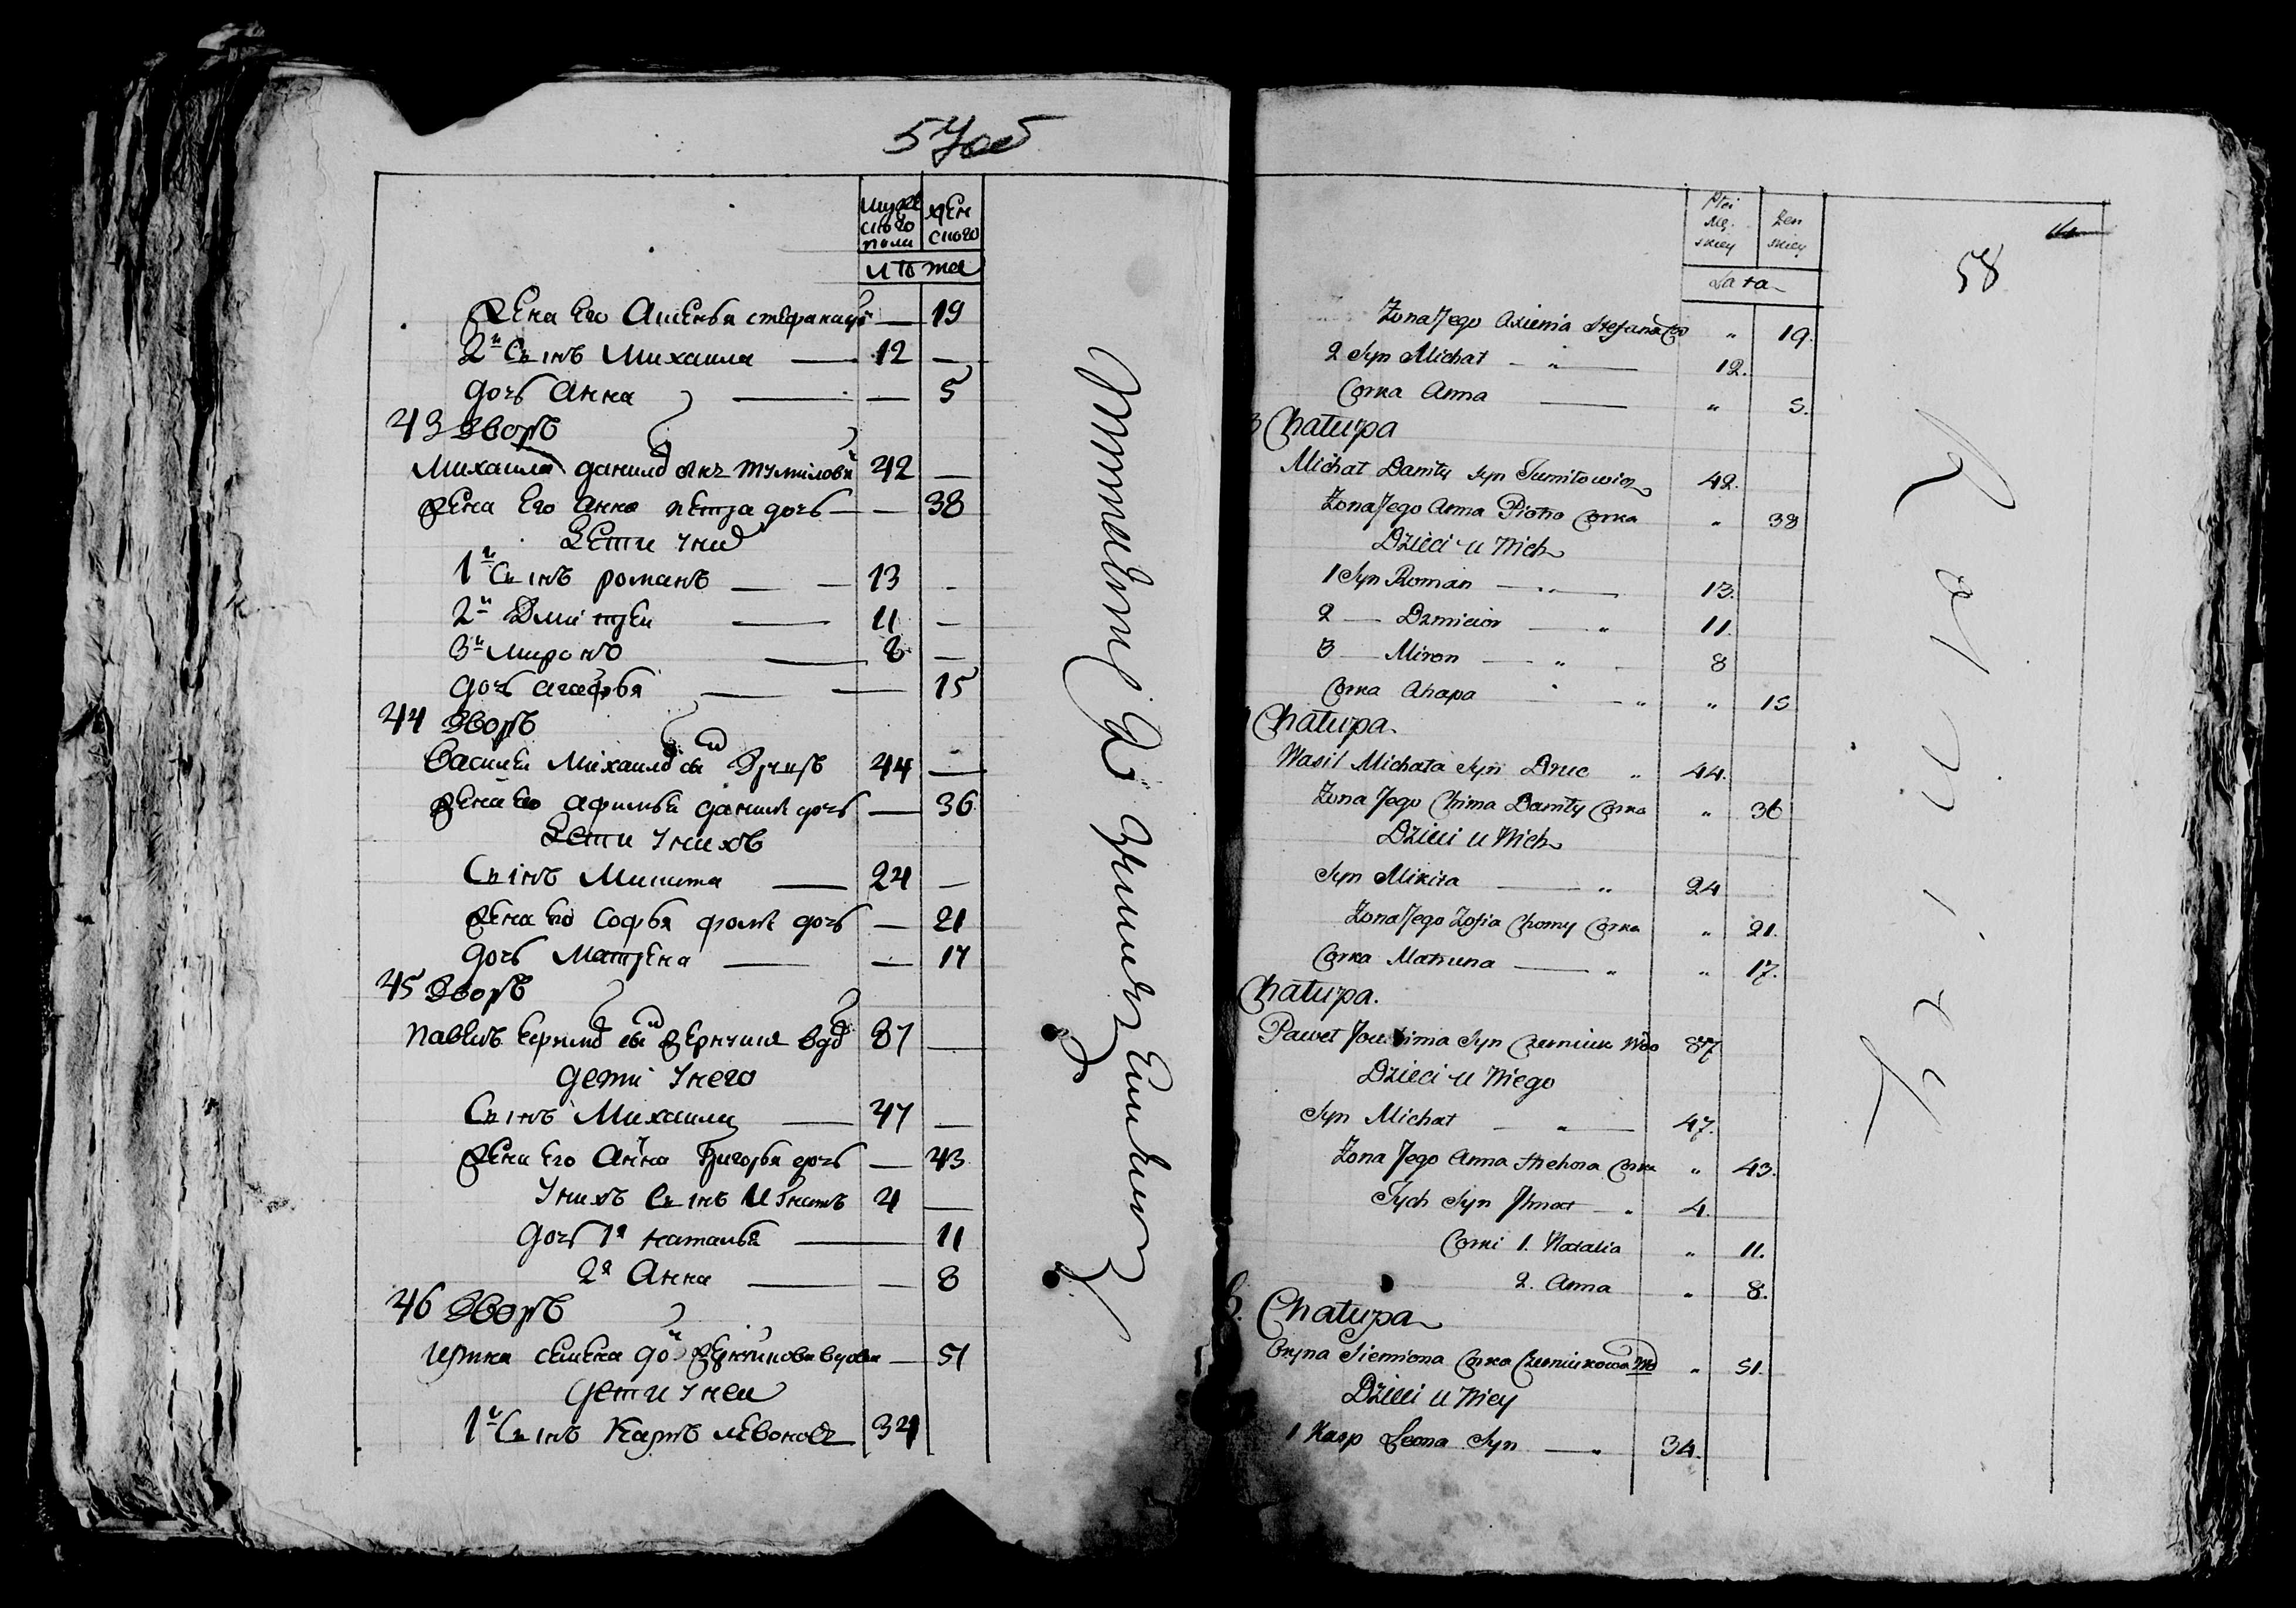 57об
мужского пола
женского
лѣта
Жена Его Аксенья стефана дочь — 19
2й Сынъ Михаила — 12 —
дочь Анна — — 5
43 Дворъ
Михаила данилов сынъ тумилови 42 —
Жена Его Анна петра дочь — — 38
Дети у них
1й Сынъ романъ — 13 -
2й Дмитрей — 11 —
3й миронъ — 8 —
дочь агафья — — 15
44 Дворъ
Василеи Михаилов сы Друцъ 44 —
Жена Его афимья данил дочь — 36
Дети у нихъ
Сынъ Микита — 24 —
Жена Его Софья фоми дочь — 21
дочь Матрена — — 17
45 Дворъ
павелъ сы вдо 87 —
дети у него
Сынъ Михаила — 47 —
Жена Его Анна Григорья дочь — 43
у нихъ Сынъ Игнатъ 4 —
дочь 1я наталья — 11
2я Анна — — 8
46 Дворъ
Ирина семена до вдова — 51
дети у неи
1й Сынъ Карпъ левонов 34
Płci Mę-skiey
Żen skiey
Lata
58
Żona Jego Axienia Stefana Cor " 19.
2 Syn Michał — " — 12.
Corka Anna — " 5.
3 Chałupa
Michał Daniły Syn Tumiłowicz 42.
Żona Jego Anna Piotra Corka " 38
Dzieci u Nich
1 Syn Roman — " — 13.
2 — Dzmicior — " 11.
3 — Miron — " - 8
Corka Ahapa " " 15
Chałupa.
Wasil Michała Syn Druc " 44.
Żona Jego Chima Daniły Corka " 36
Dzieci u Nich
Syn Mikita — " 24
Żona Jego Zofia Chomy Corka " 21.
Corka Matruna — " " 17.
Chałupa.
Paweł Syn Czerniuk Wdo 87
Dzieci u Niego
Syn Michał — " — 47.
Żona Jego Anna Hrehora Corka " 43.
Tych Syn Ihnat — " 4.
Corki 1. Natalia " 11.
2. Anna " 8.
6. Chałupa
Oryna Siemiona Corka Czerniukowa Wdo " 51.
Dzieci u Niey
1 Karp Leona Syn — " 34.